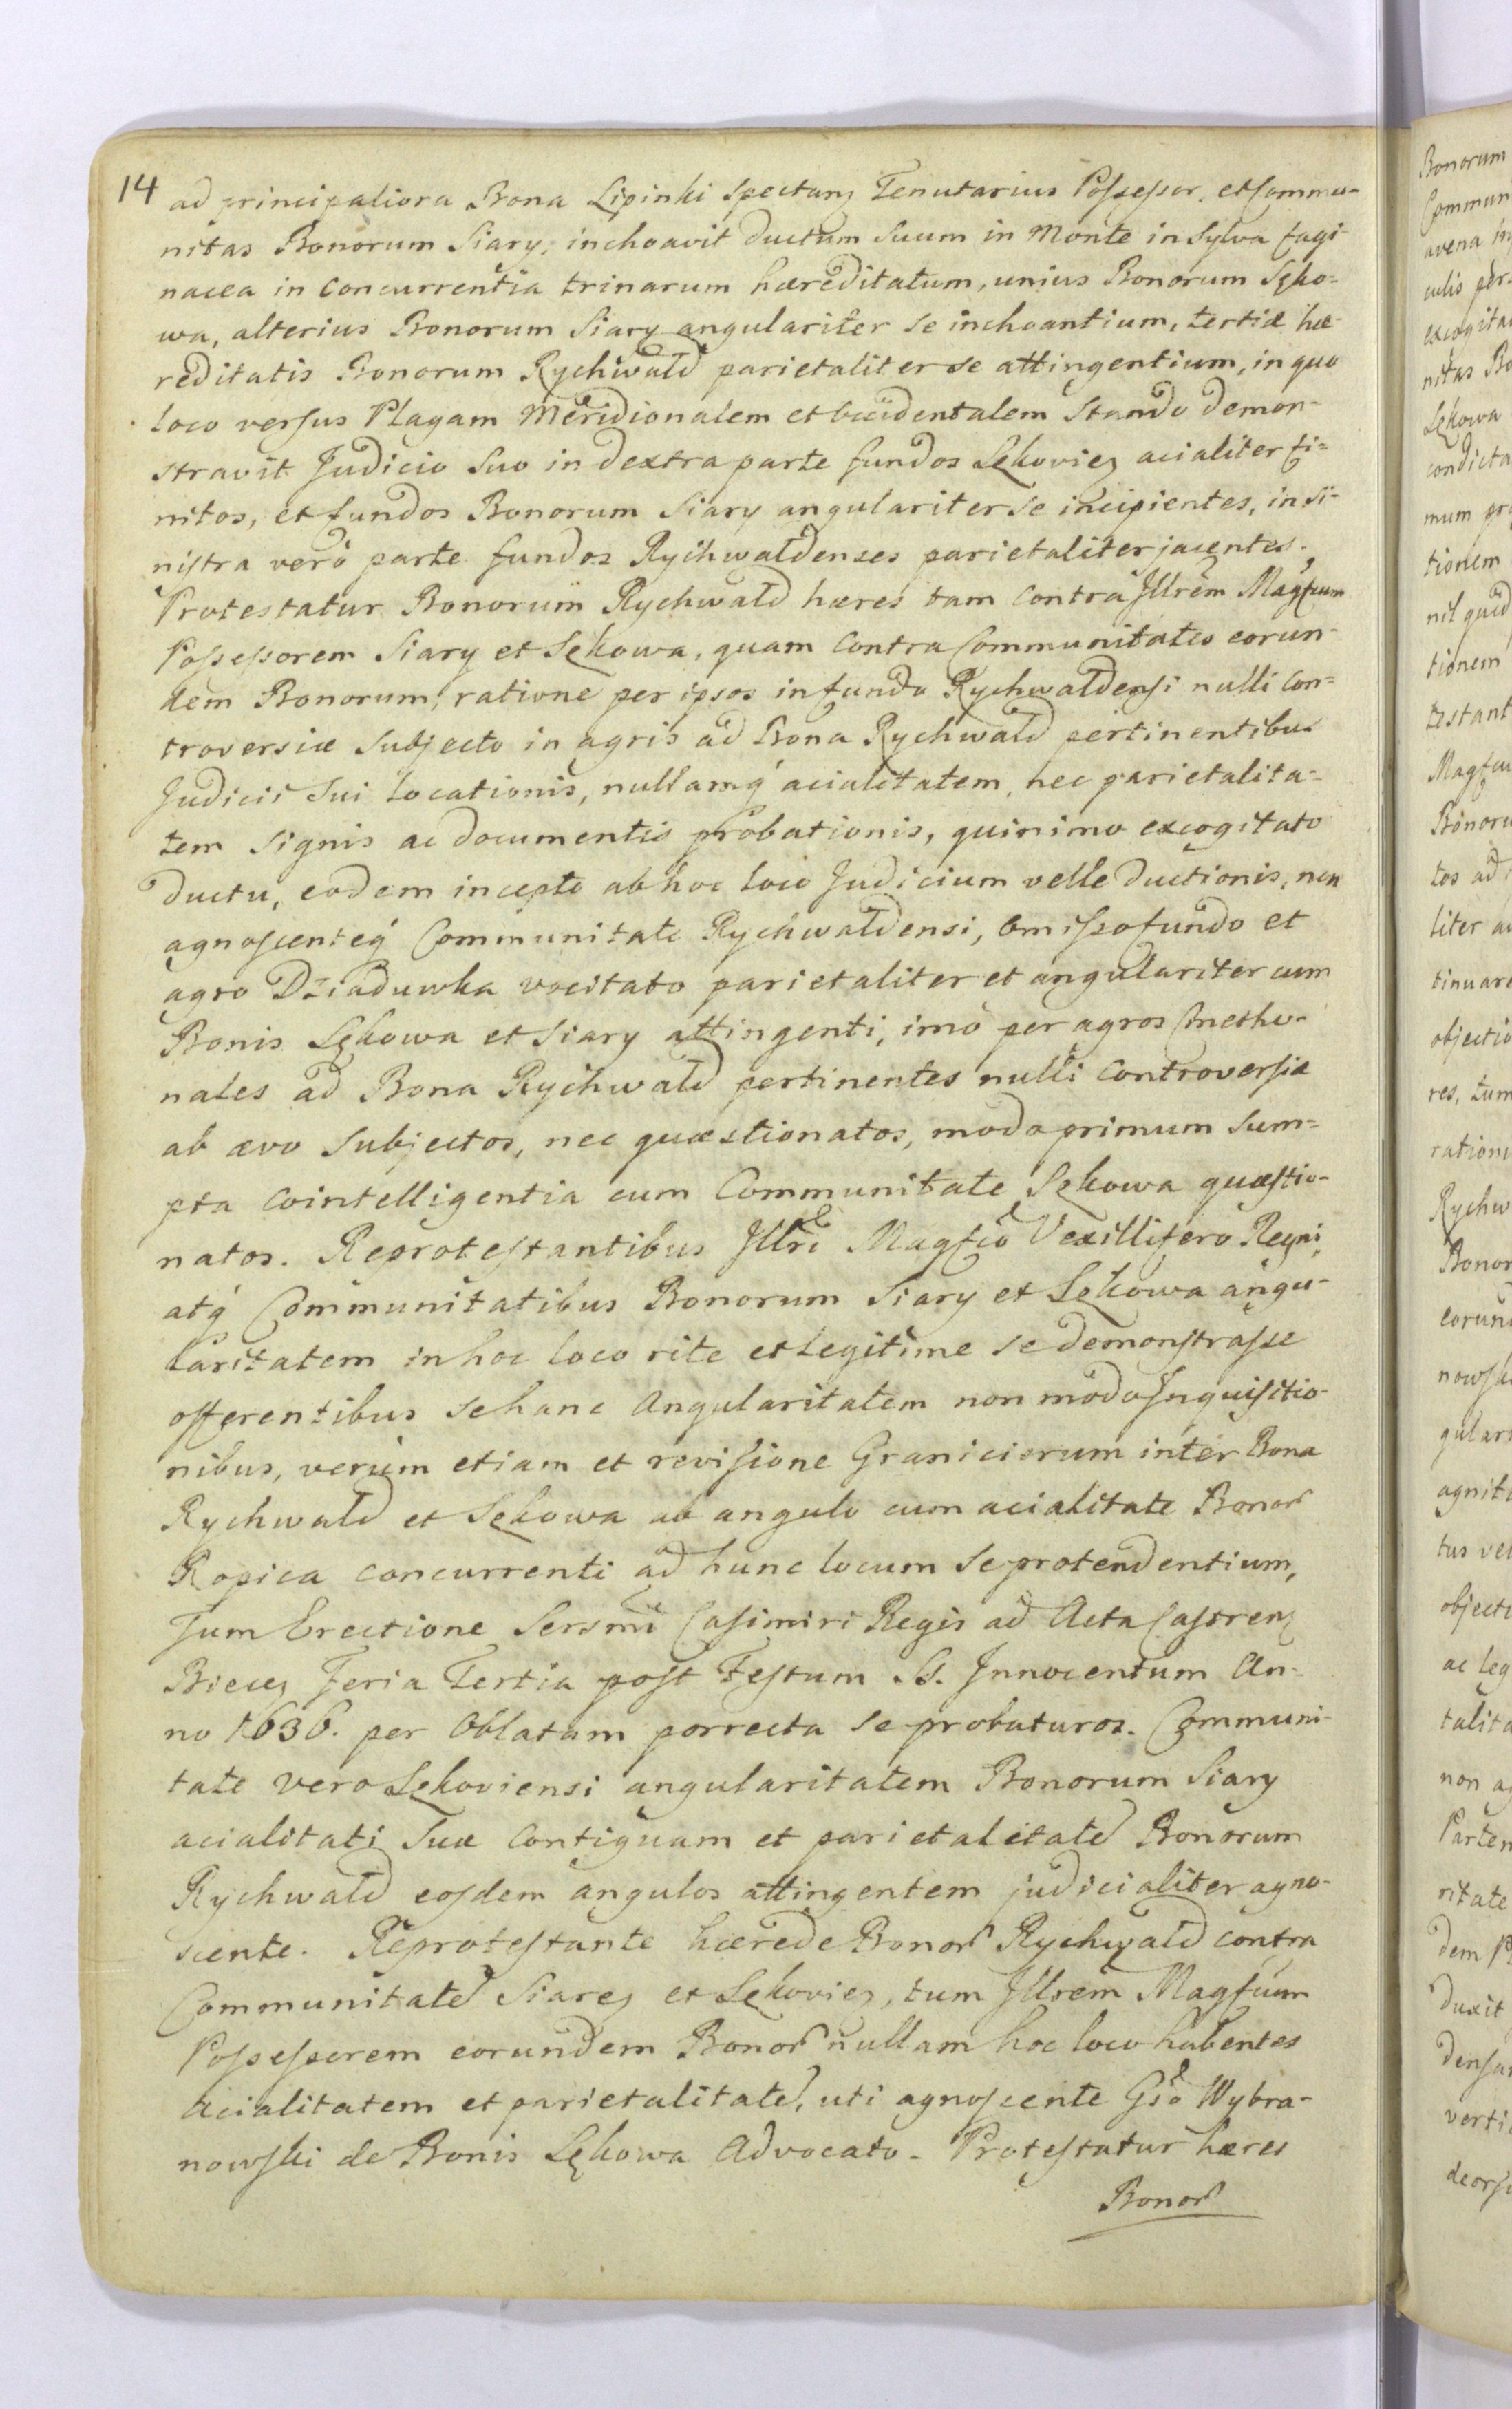 14 ad principaliora Bona Lipinki Spectanz Tenutarius Possessor, et Commu-
nitas Bonorum Siary, inchoavit ductum Suum in Monte in Sylva fagi-
nacea in Concurrentia trinarum hæreditatum, unius Bonorum Sęko-
wa, alterius Bonorum Siary angulariter Se inchoantium, tertiæ hæ-
reditatis Bonorum Rychwałd parietaliter se attingentium, in quo
loco versus Plagam Meridionalem et Occidentalem Stando demon-
stravit Judicio Suo in dextra parte fundos Sękovien acialiter fi-
nitos, et fundos Bonorum Siary angulariter Se incipientes, in Si-
nistra verò parte fundos Rychwałdenses parietaliter jacentes.
Protestatur Bonorum Rychwałd hæres tam contra Jllrem Magfcum
Possessorem Siary et Sękowa, quam contra Communitates eorun-
dem Bonorum, ratione per ipsos in fundo Rychwałdensi nulli Con-
troversiæ Subjecto in agris ad Bona Rychwałd pertinentibus
Judicii Sui locationis, nullamq́ acialitatem, nec parietalita-
tem Signis ac documentis probationis, quinimo excogitato
ductu, eodem incepto ab hoc loco Judicium velle ductionis, non
agnoscenteq́ Communitate Rychwałdensi, Omisso fundo et
agro Dziaduwka vocitato parietaliter et angulariter cum
Bonis Sękowa et Siary attingenti, imo per agros Cmetho-
nales ad Bona Rychwałd pertinentes nulli Controversiæ
ab ævo Subjectos, nec quæstionatos, modo primum Sum-
pta Cointelligentia cum Communitate Sękowa quæstio-
natos. Reprotestantibus Jllri Magfco Vexillifero Regni,
atq́ Communitatibus Bonorum Siary et Sękowa angu-
laritatem in hoc loco rite et legitime Se demonstrasse
offerentibus Se hanc Angularitatem non modo Inquisitio-
nibus, verùm etiam et revisione Graniciorum inter Bona
Rychwałd et Sękowa ab angulo cum acialitate Bonor
Ropica concurrenti ad hunc locum Se protendentium,
Tum Erectione Sersmi Casimiri Regis ad Acta Castren
Biecen Feria Tertia post Festum SS. Innocentum An-
no 1636. per Oblatam porrecta Se probaturos. Communi-
tate vero Sękoviensi angularitatem Bonorum Siary
acialitati Suæ Contiguam et parietalitate Bonorum
Rychwałd eosdem angulos attingentem judicialiter agno-
scente. Reprotestante hærede Bonor Rychwałd contra
Communitate Siaren et Sękovien, tum Jllrem Magfcum
Possessorem eorundem Bonor nullam hoc loco habentes
Acialitatem et parietalitate, uti agnoscente Gso Wybra-
nowski de Bonis Sękowa Advocato. Protestatur hæres
Bonor
Bonorum
Commun
avena in
culis per-
excogita
nitas Bo
Sękowa
condicta
mum pr
tionem
nil quid
tionem
testant
Magfcu
Bonoru
tos ad
liter a
tinuare
objectio
res, tum
ratione
Rychw
Bonor
eorun
nowsk
gular
agnit
tus ve
objecti
ac leg
talita
non ag
Parten
ritate
dem P
duxit
densa
verti
deors